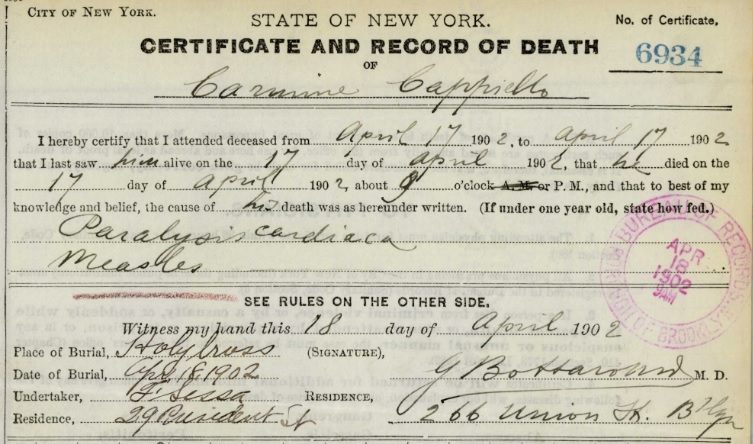 CITY OF NEW YORK.
STATE OF NEW YORK.
No. of Certificate,
6934
CERTIFICATE AND RECORD OF DEATH
OF
Carmine Cappiello
I hereby certify that I attended deceased from April 17 1902, to April 17 1902
that I last saw him alive on the 17 day of April 1902, that he died on the
17 day of April 1902, about 9 o'clock A.M. or P.M., and that to best of my
knowledge and belief, the cause of his death was as hereunder written. (If under one year old, state how fed.)
Paralysis cardiaca
Measles
BUREAU OF RECORDS
APR
18
1902
9AM
OF BROOKLYN
SEE RULES ON THE OTHER SIDE.
Witness my hand this 18 day of April 1902
Place of Burial, Holy Cross (SIGNATURE),
Date of Burial, Apr 18, 1902 G M. D.
Undertaker, F. Sessa RESIDENCE,
Residence, 29 President St 266 Union St. Bklyn